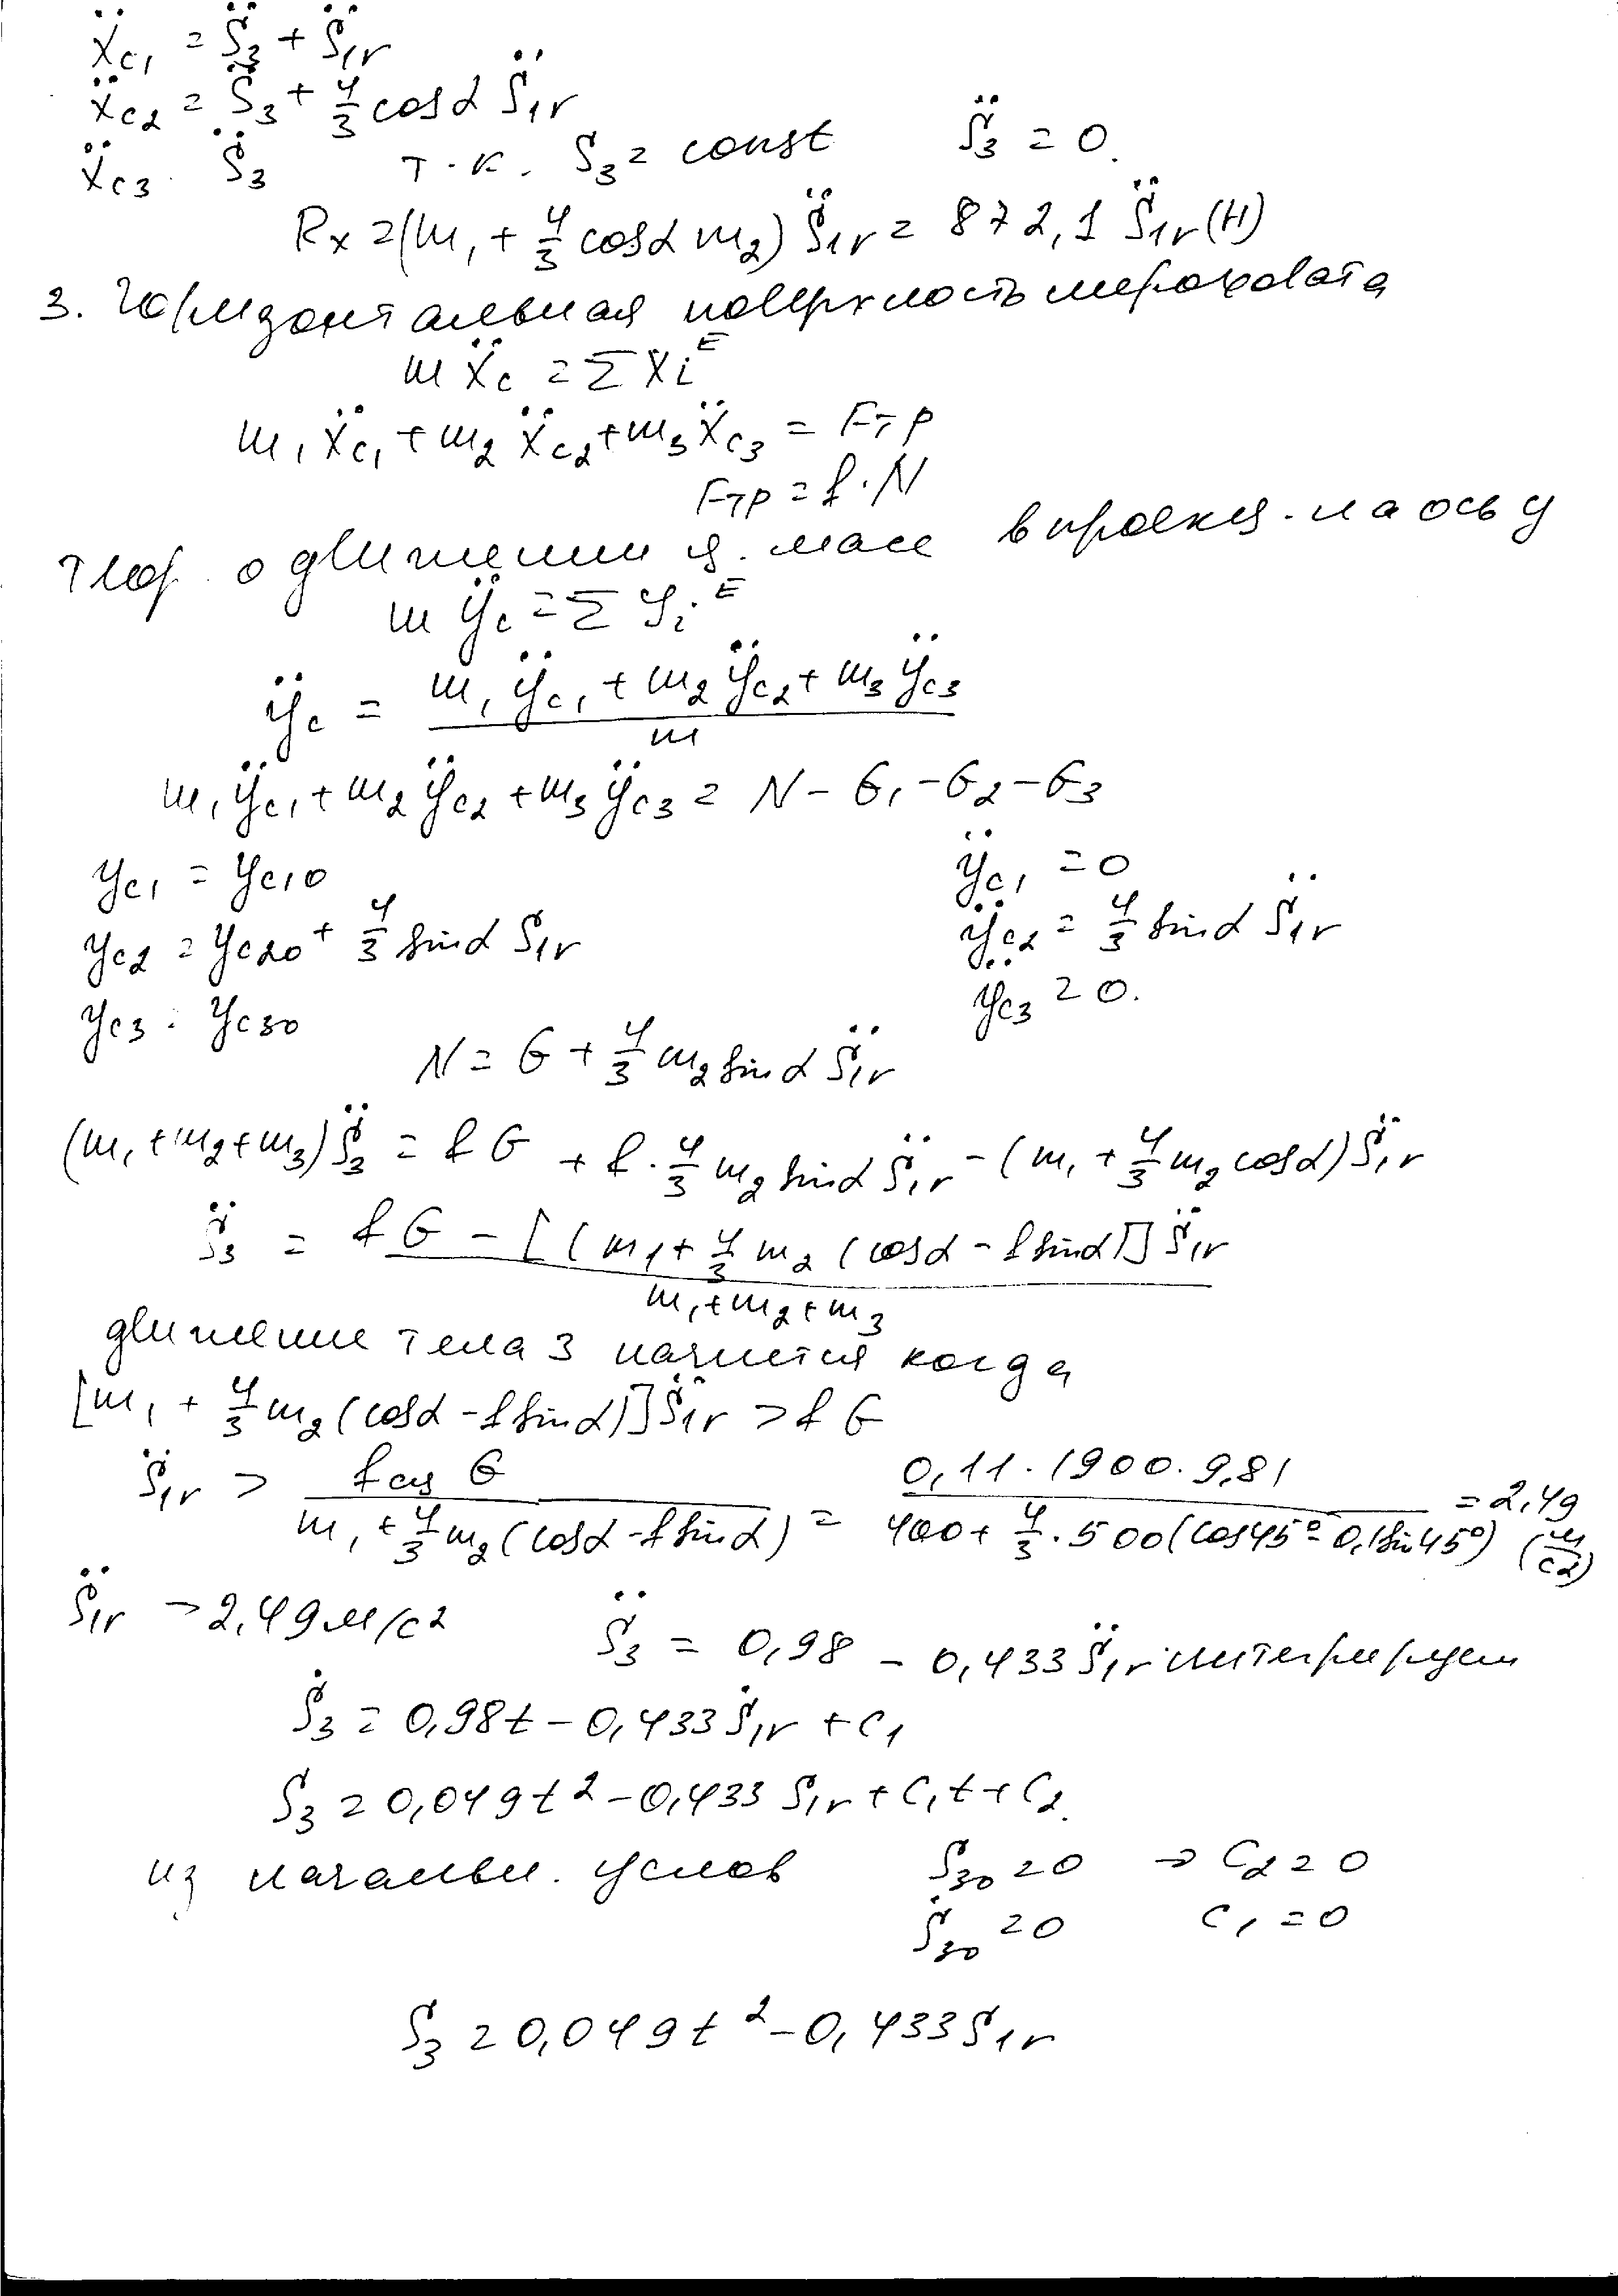 ẍc1 = S̈3 + S̈1r
ẍc2 = S̈3 + 4/3 cosα S̈1r
ẍc3 · S̈3 т.к. S3 = const S̈3 = 0.
Rx = (m1 + 4/3 cosα m2) S̈1r = 872,1 S̈1r (Н)
3. Горизонтальная поверхность шероховата
m ẍc = Σ Xi^E
m1 ẍc1 + m2 ẍc2 + m3 ẍc3 = Fтр
Fтр = f · N
теор. о движении ц. масс в проекц. на ось y
m ÿc = Σ yi^E
ÿc = (m1 ÿc1 + m2 ÿc2 + m3 ÿc3) / m
m1 ÿc1 + m2 ÿc2 + m3 ÿc3 = N - G1 - G2 - G3
yc1 = yc10 ÿc1 = 0
yc2 = yc20 + 4/3 sinα S1r ÿc2 = 4/3 sinα S̈1r
yc3 = yc30 ÿc3 = 0.
N = G + 4/3 m2 sinα S̈1r
(m1 + m2 + m3) S̈3 = f G + f · 4/3 m2 sinα S̈1r - (m1 + 4/3 m2 cosα) S̈1r
S̈3 = (f G - [(m1 + 4/3 m2 (cosα - f sinα)] S̈1r) / (m1 + m2 + m3)
движение тела 3 начнется когда
[m1 + 4/3 m2 (cosα - f sinα)] S̈1r > f G
S̈1r > fсц G / (m1 + 4/3 m2 (cosα - f sinα)) = 0,11 · 1900 · 9,81 / (400 + 4/3 · 500 (cos45° - 0,1 sin45°)) = 2,49 (м/с2)
S̈1r > 2,49 м/с2 S̈3 = 0,98 - 0,433 S̈1r интегрируем
Ṡ3 = 0,98t - 0,433 Ṡ1r + C1
S3 = 0,049t2 - 0,433 S1r + C1t + C2
из начальн. услов S30 = 0 → C2 = 0
Ṡ30 = 0 C1 = 0
S3 = 0,049t2 - 0,433 S1r